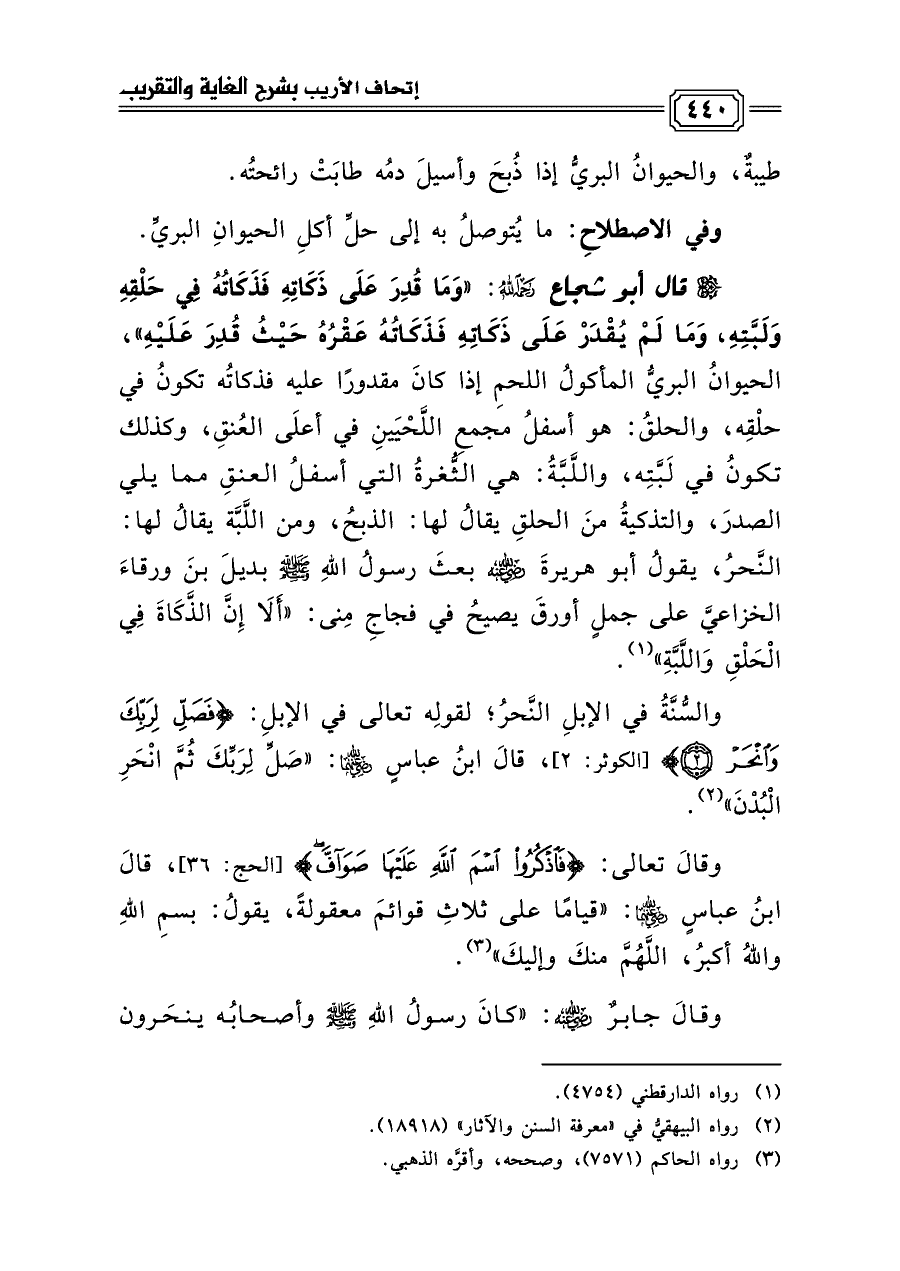 إتحاف الأريب بشرح الغاية والتقريب
٤٤٠
طيبةٌ، والحيوانُ البريُّ إذا ذُبحَ وأسيلَ دمُه طابَتْ رائحتُه.
وفي الاصطلاحِ: ما يُتوصلُ به إلى حلِّ أكلِ الحيوانِ البريِّ.
قال أبو شجاع رَحِمَهُ اللَّهُ: «وَمَا قُدِرَ عَلَى ذَكَاتِهِ فَذَكَاتُهُ فِي حَلْقِهِ
وَلَبَّتِهِ، وَمَا لَمْ يُقْدَرْ عَلَى ذَكَاتِهِ فَذَكَاتُهُ عَقْرُهُ حَيْثُ قُدِرَ عَلَيْهِ»،
الحيوانُ البريُّ المأكولُ اللحمِ إذا كانَ مقدورًا عليه فذكاتُه تكونُ في
حلْقِه، والحلقُ: هو أسفلُ مجمعِ اللَّحْيَينِ في أعلَى العُنقِ، وكذلك
تكونُ في لَبَّتِه، واللَّبَّةُ: هي الثُّغرةُ التي أسفلُ العنقِ مما يلي
الصدرَ، والتذكيةُ منَ الحلقِ يقالُ لها: الذبحُ، ومن اللَّبَّة يقالُ لها:
النَّحرُ، يقولُ أبو هريرةَ رَضِيَ اللَّهُ عَنْهُ بعثَ رسولُ اللهِ ﷺ بديلَ بنَ ورقاءَ
الخزاعيَّ على جملٍ أورقَ يصيحُ في فجاجِ مِنى: «أَلَا إِنَّ الذَّكَاةَ فِي
الْحَلْقِ وَاللَّبَّةِ»(١).
والسُّنَّةُ في الإبلِ النَّحرُ؛ لقولِه تعالى في الإبلِ: ﴿فَصَلِّ لِرَبِّكَ
وَٱنْحَرْ ۝٢﴾ [الكوثر: ٢]، قالَ ابنُ عباسٍ رَضِيَ اللَّهُ عَنْهُمَا: «صَلِّ لِرَبِّكَ ثُمَّ انْحَرِ
الْبُدْنَ»(٢).
وقالَ تعالى: ﴿فَٱذْكُرُوا۟ ٱسْمَ ٱللَّهِ عَلَيْهَا صَوَآفَّۖ﴾ [الحج: ٣٦]، قالَ
ابنُ عباسٍ رَضِيَ اللَّهُ عَنْهُمَا: «قيامًا على ثلاثِ قوائمَ معقولةً، يقولُ: بسمِ اللهِ
واللهُ أكبرُ، اللَّهُمَّ منكَ وإليكَ»(٣).
وقالَ جابرٌ رَضِيَ اللَّهُ عَنْهُ: «كانَ رسولُ اللهِ ﷺ وأصحابُه ينحَرون
(١) رواه الدارقطني (٤٧٥٤).
(٢) رواه البيهقيُّ في «معرفة السنن والآثار» (١٨٩١٨).
(٣) رواه الحاكم (٧٥٧١)، وصححه، وأقرَّه الذهبي.